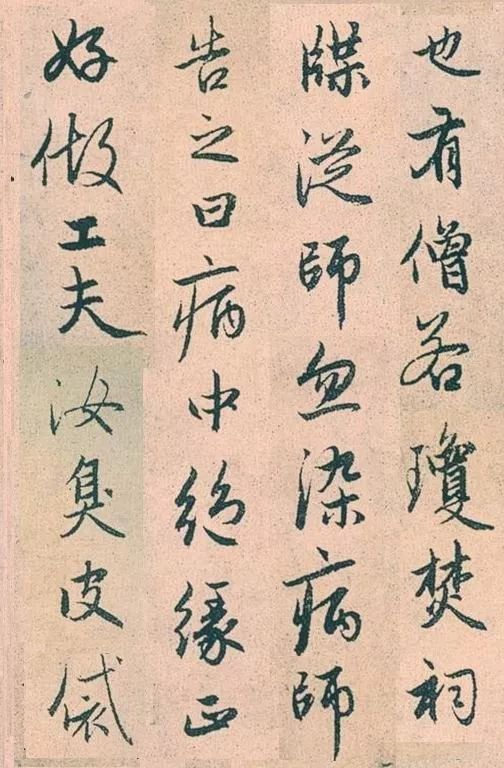 也有僧若瓊焚祠
牒從師忽染病師
告之曰病中絕緣正
好做工夫汝臭皮袋